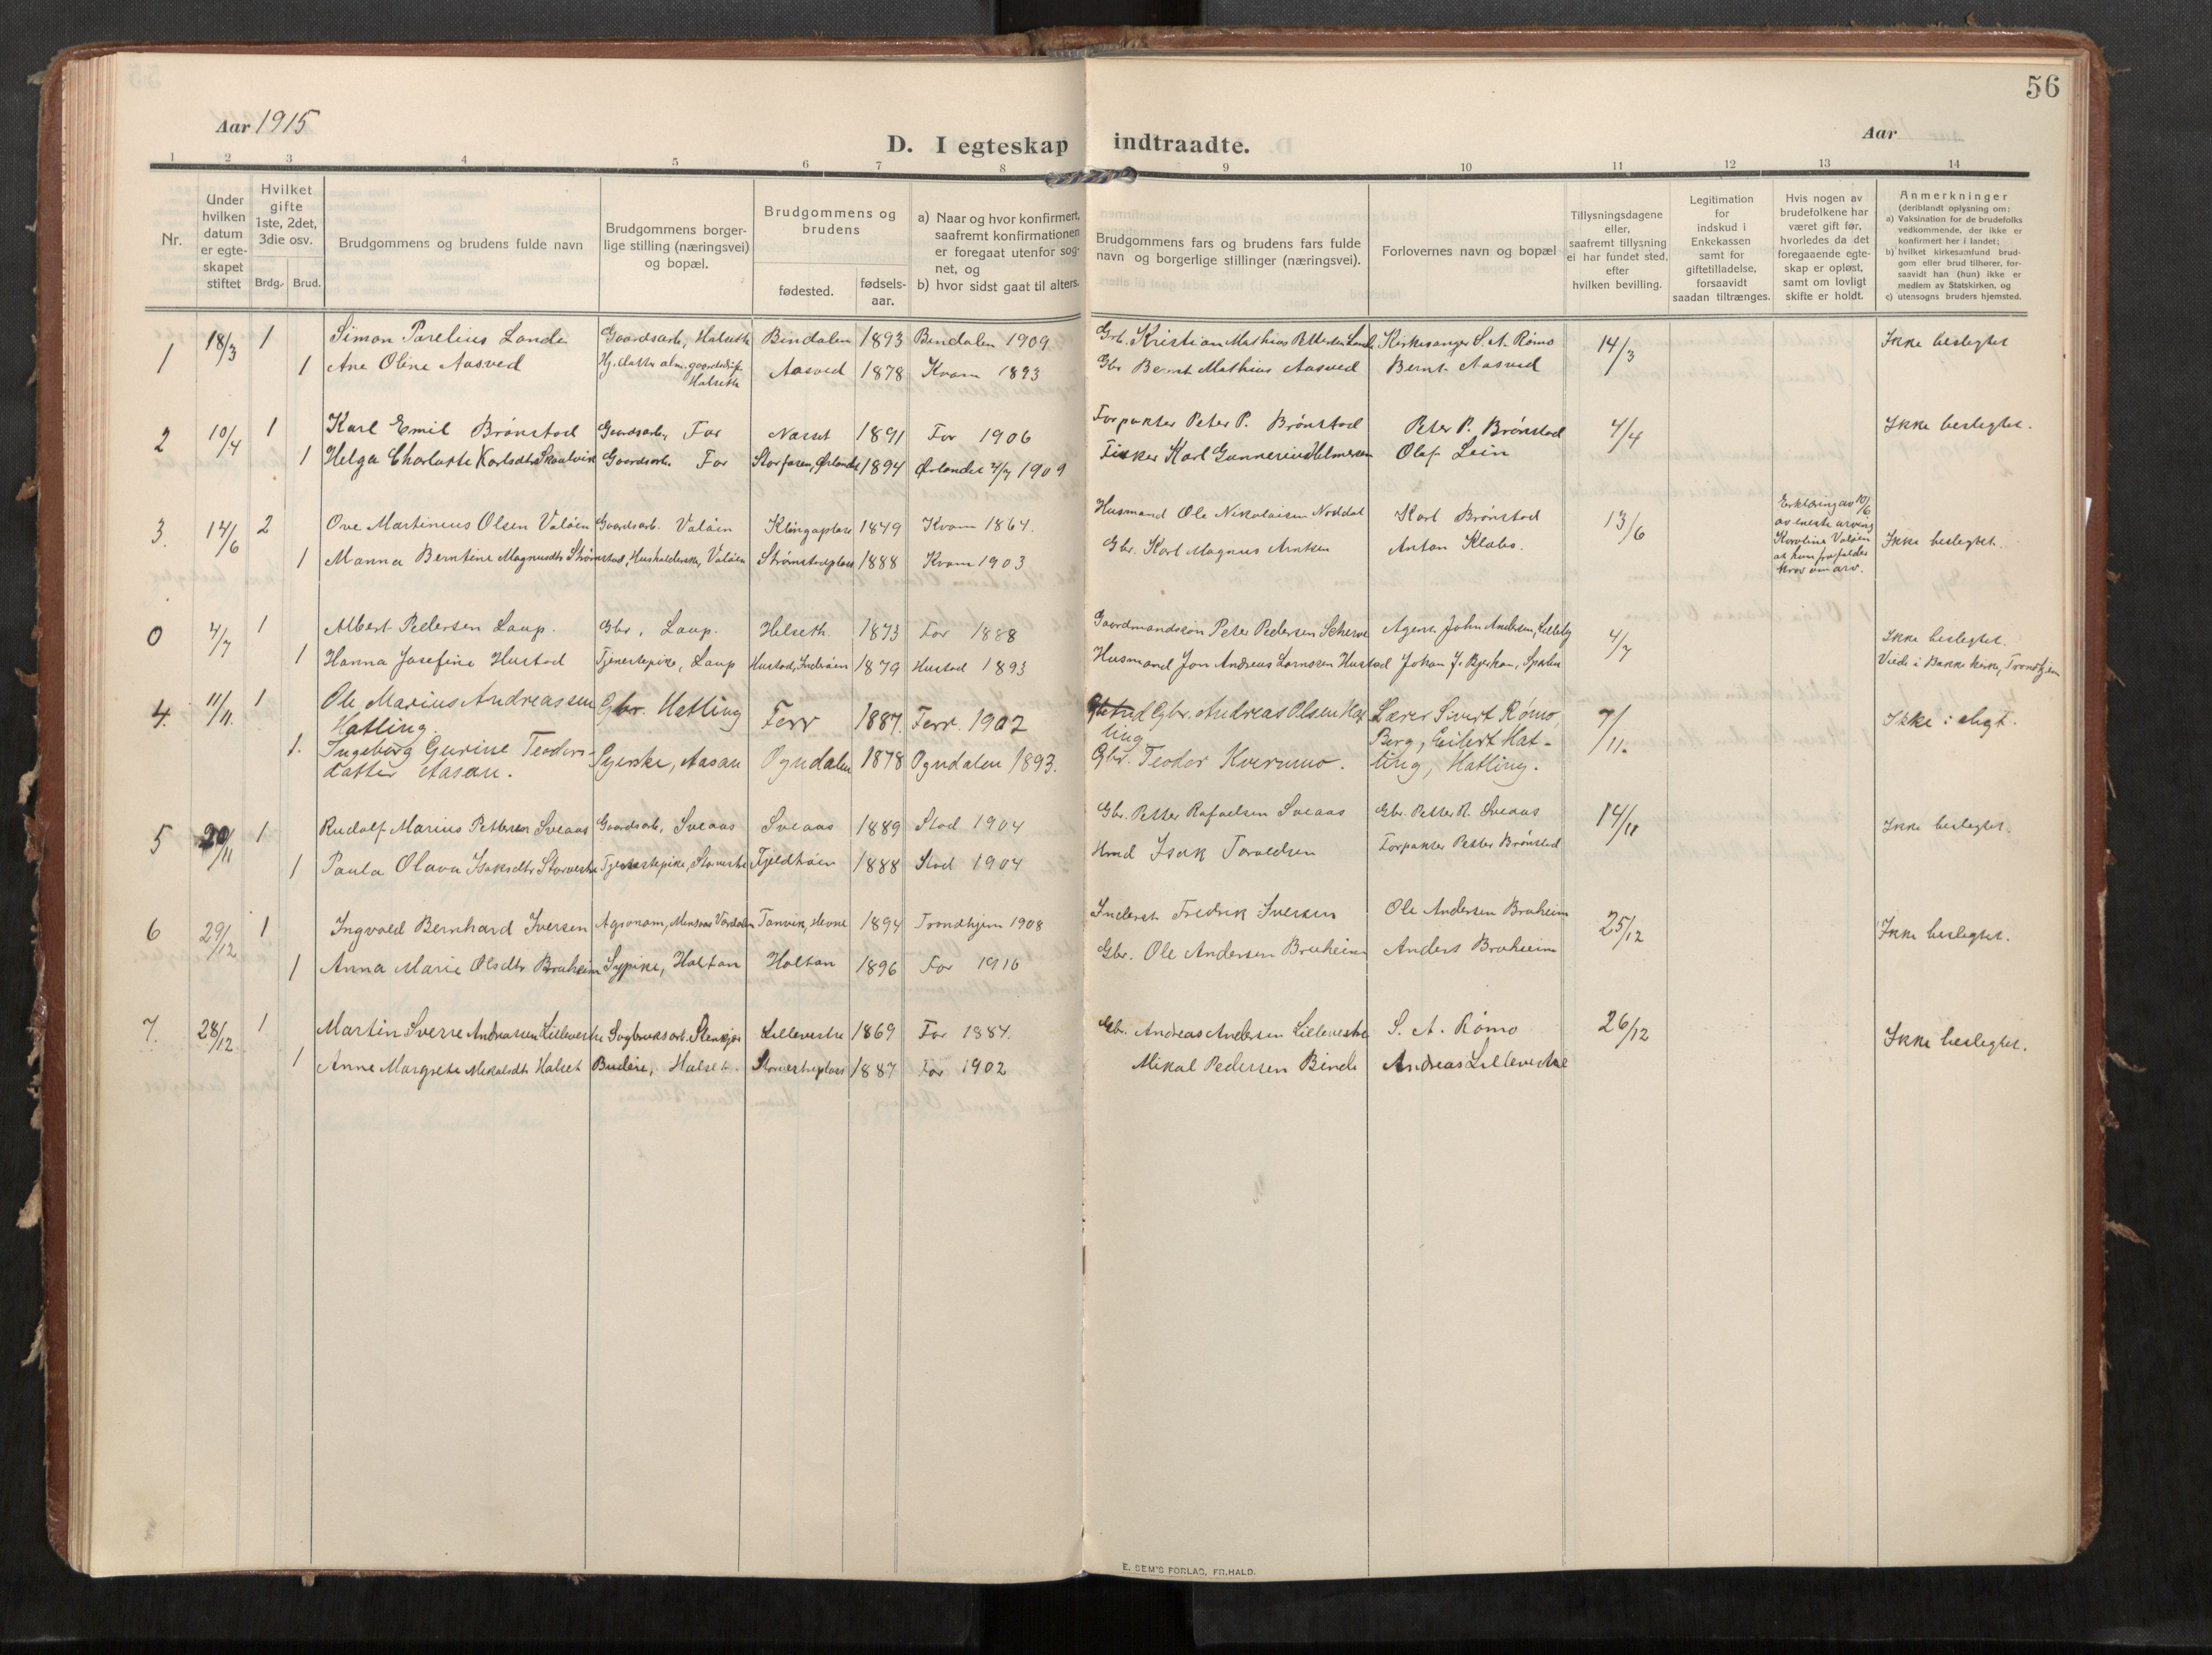 56
Aar 1915
Aar
D. I egteskap indtraadte.
1 2 3 4 5 6 7 8 9 10 11 12 13 14
Nr.
Under hvilken datum er egteskapet stiftet
Hvilket gifte 1ste, 2det, 3die osv.
Brdg. Brud.
Brudgommens og brudens fulde navn
Brudgommens borgerlige stilling (næringsvei) og bopæl.
Brudgommens og brudens
fødested.
fødselsaar.
a) Naar og hvor konfirmert, saafremt konfirmationen er foregaat utenfor sognet, og
b) hvor sidst gaat til alters.
Brudgommens fars og brudens fars fulde navn og borgerlige stillinger (næringsvei).
Forlovernes navn og bopæl
Tillysningsdagene eller, saafremt tillysning ei har fundet sted, efter hvilken bevilling.
Legitimation for indskud i Enkekassen samt for giftetilladelse, forsaavidt saadan tiltrænges.
Hvis nogen av brudefolkene har været gift før, hvorledes da det foregaaende egteskap er opløst, samt om lovligt skifte er holdt.
Anmerkninger
(deriblandt oplysning om:
a) Vaksination for de brudefolks vedkommende, der ikke er konfirmert her i landet;
b) hvilket kirkesamfund brudgom eller brud tilhører, forsaavidt han (hun) ikke er medlem av Statskirken, og
c) utensogns bruders hjemsted.
1 18/3 1 Simon Parelius Lande Gaardsarb, Halseth Bindalen 1893 Bindalen 1909 Grb. Kristian Mathias Pettersen Lande Kirkesanger S. A. Rømo 14/3 Ikke beslegtet
1 Ane Oline Aasved Hj. datter alm. gaardsdrift Halseth Aasved 1878 Kvam 1893 Gbr Bernt Mathias Aasved Bernt Aasved
2 10/4 1 Karl Emil Brønstad Gaardsarb, For Næsset 1891 For 1906 Forpakter Peter P. Brønstad Peter P. Brønstad 4/4 Ikke beslegtet.
1 Helga Charlotte Karlsdtr Skaalvik Gaardsarb. For Storfosen, Ørlandet 1894 Ørlandet 4/7 1909 Fisker Karl Gunnerius Helmersen Olaf Lein
3. 14/6 2 Ove Martinius Olsen Valøien Gaardsarb. Valøien Klingaplass 1849 Kvam 1864. Husmand Ole Nikolaisen Noddal Karl Brønstad 13/6 Erklæring av 10/6 av eneste arving Karoline Valøien at hun frafalder krav om arv. Ikke beslegtet.
1 Manna Berntine Magnusdtr Strømstad, Husholderske, Valøien Strømstadplass 1888 Kvam 1903 Gbr. Karl Magnus Arntsen Anton Klabo.
0 4/7 1 Albert Pedersen Laup. Gbr, Laup. Helseth. 1873 For 1888 Gaardmandssøn Peter Pedersen Scherve Agent John Andersen, Lilleby 4/7 Ikke beslegtet.
1 Hanna Josefine Hustad Tjenestepike, Laup Hustad, Inderøen 1879 Hustad 1893 Husmand Jon Andreas Larnsen Hustad Johan J. Bjerkan, Spærbu Viede i Bakke kirke, Trondhjem
4. 11/11. 1 Ole Marius Andreassen Hatling. Gbr. Hatling Ferr 1887. Ferr. 1902 Gbr. Andreas Olsen Hatling Lærer Sivert Rømo, Berg, Eilert Hatling, Hatling. 7/11. Ikke i slegt.
1. Ingeborg Gurine Teodorsdatter Aasan. Syerske, Aasan Ogndalen 1878 Ogndalen 1893. Gbr. Teodor Kvernmo.
5 20/11 1 Rudolf Marius Pettersen Sveaas Gaardsarb, Sveaas Sveaas 1889 Stod 1904 Gbr. Petter Rafaelsen Sveaas Gbr. Petter R. Sveaas 14/11 Ikke beslegtet.
1 Paula Olava Isaksdtr Storvestre Tjenestepike, Storvestre Fjeldhøien 1888 Stod 1904 Hmd Isak Toraldsen Forpakter Petter Brønstad
6 29/12 1 Ingvald Bernhard Iversen Agronom, Mensaas Værdalen Tanvik, Hevne 1894 Trondhjem 1908 Inderst Fredrik Iversen Ole Andersen Bruheim 25/12 Ikke beslegtet.
1 Anna Marie Olsdtr Bruheim Sypike, Holtan Holtan 1896 For 1910 Gbr. Ole Andersen Bruheim Anders Bruheim
7. 28/12 1 Martin Sverre Andreassen Lillevestre Sagbruksarb. Stenkjær Lillevestre 1869 For 1884. Gbr. Andreas Andersen Lillevestre S. A. Rømo 26/12 Ikke beslegtet.
1 Anne Margrete Mikalsdtr Halset Budeie, Halset. Storvestreplass 1887 For 1902 Mikal Pedersen Binde Andreas Lillevestre
E. SEM'S FORLAG, FR.HALD.